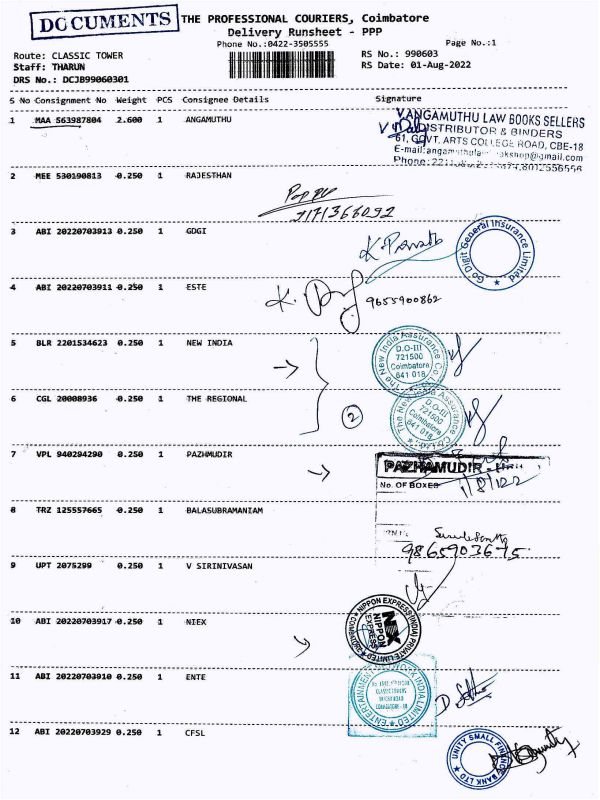 DOCUMENTS
THE PROFESSIONAL COURIERS, Coimbatore
Delivery Runsheet - PPP
Phone No.:0422-3505555
Page No.:1
Route: CLASSIC TOWER
RS No.: 990603
Staff: THARUN
RS Date: 01-Aug-2022
DRS No.: DCJB99060301
S No Consignment No Weight PCS Consignee Details Signature
1 MAA 563987804 2.600 1 ANGAMUTHU
VANGAMUTHU LAW BOOKS SELLERS
DISTRIBUTOR & BINDERS
61, GOVT. ARTS COLLEGE ROAD, CBE-18
2 MEE 530190813 0.250 1 RAJESTHAN
7171366092
3 ABI 20220703913 0.250 1 GDGI
Go Digit General Insurance Limited
4 ABI 20220703911 0.250 1 ESTE
9655900862
5 BLR 2201534623 0.250 1 NEW INDIA
The New India Assurance Co. Ltd.
D.O-III
721500
Coimbatore
641 018
6 CGL 20008936 0.250 1 THE REGIONAL
2
The New India Assurance Co. Ltd.
D.O-III
721500
Coimbatore
641 018
7 VPL 940294290 0.250 1 PAZHMUDIR
PAZHAMUDIR
No. OF BOXES
1/8/22
8 TRZ 125557665 0.250 1 BALASUBRAMANIAM
9865903675
9 UPT 2075299 0.250 1 V SIRINIVASAN
10 ABI 20220703917 0.250 1 NIEX
NIPPON EXPRESS (INDIA) PRIVATE LIMITED
NEX
NIPPON
EXPRESS
11 ABI 20220703910 0.250 1 ENTE
ENTERTAINMENT NETWORK INDIA LIMITED
12 ABI 20220703929 0.250 1 CFSL
UNITY SMALL FINANCE BANK LTD